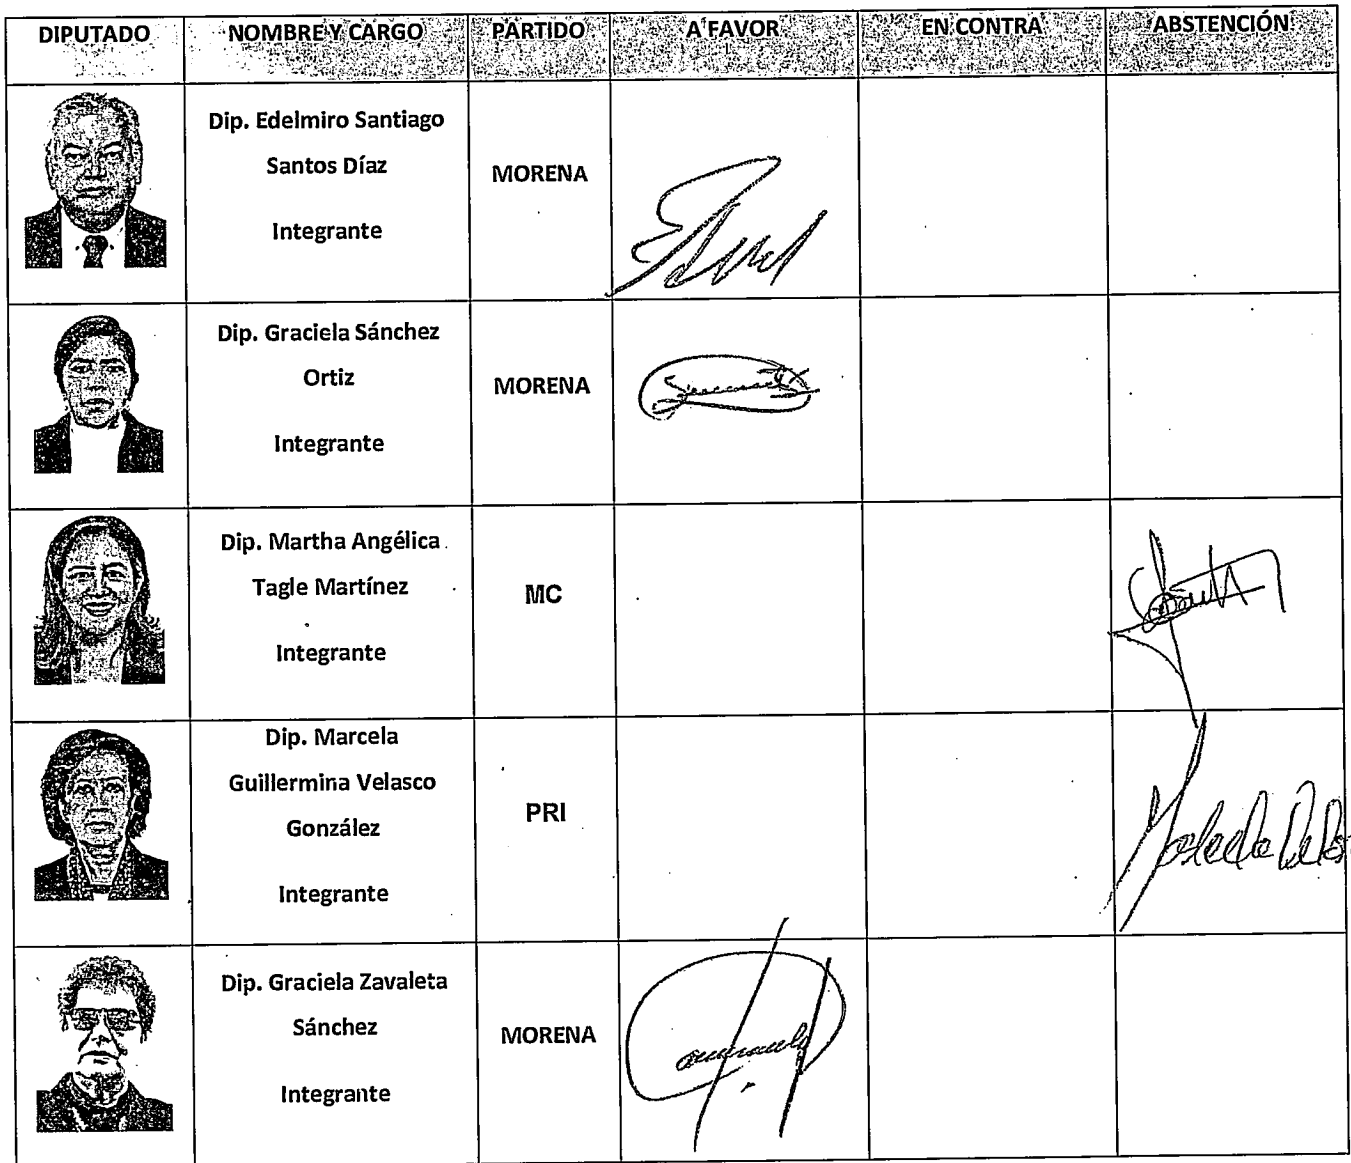 DIPUTADO NOMBRE Y CARGO PARTIDO A FAVOR EN CONTRA ABSTENCIÓN
Dip. Edelmiro Santiago
Santos Díaz
Integrante
MORENA
Dip. Graciela Sánchez
Ortiz
Integrante
MORENA
Dip. Martha Angélica
Tagle Martínez
Integrante
MC
Dip. Marcela
Guillermina Velasco
González
Integrante
PRI
Dip. Graciela Zavaleta
Sánchez
Integrante
MORENA